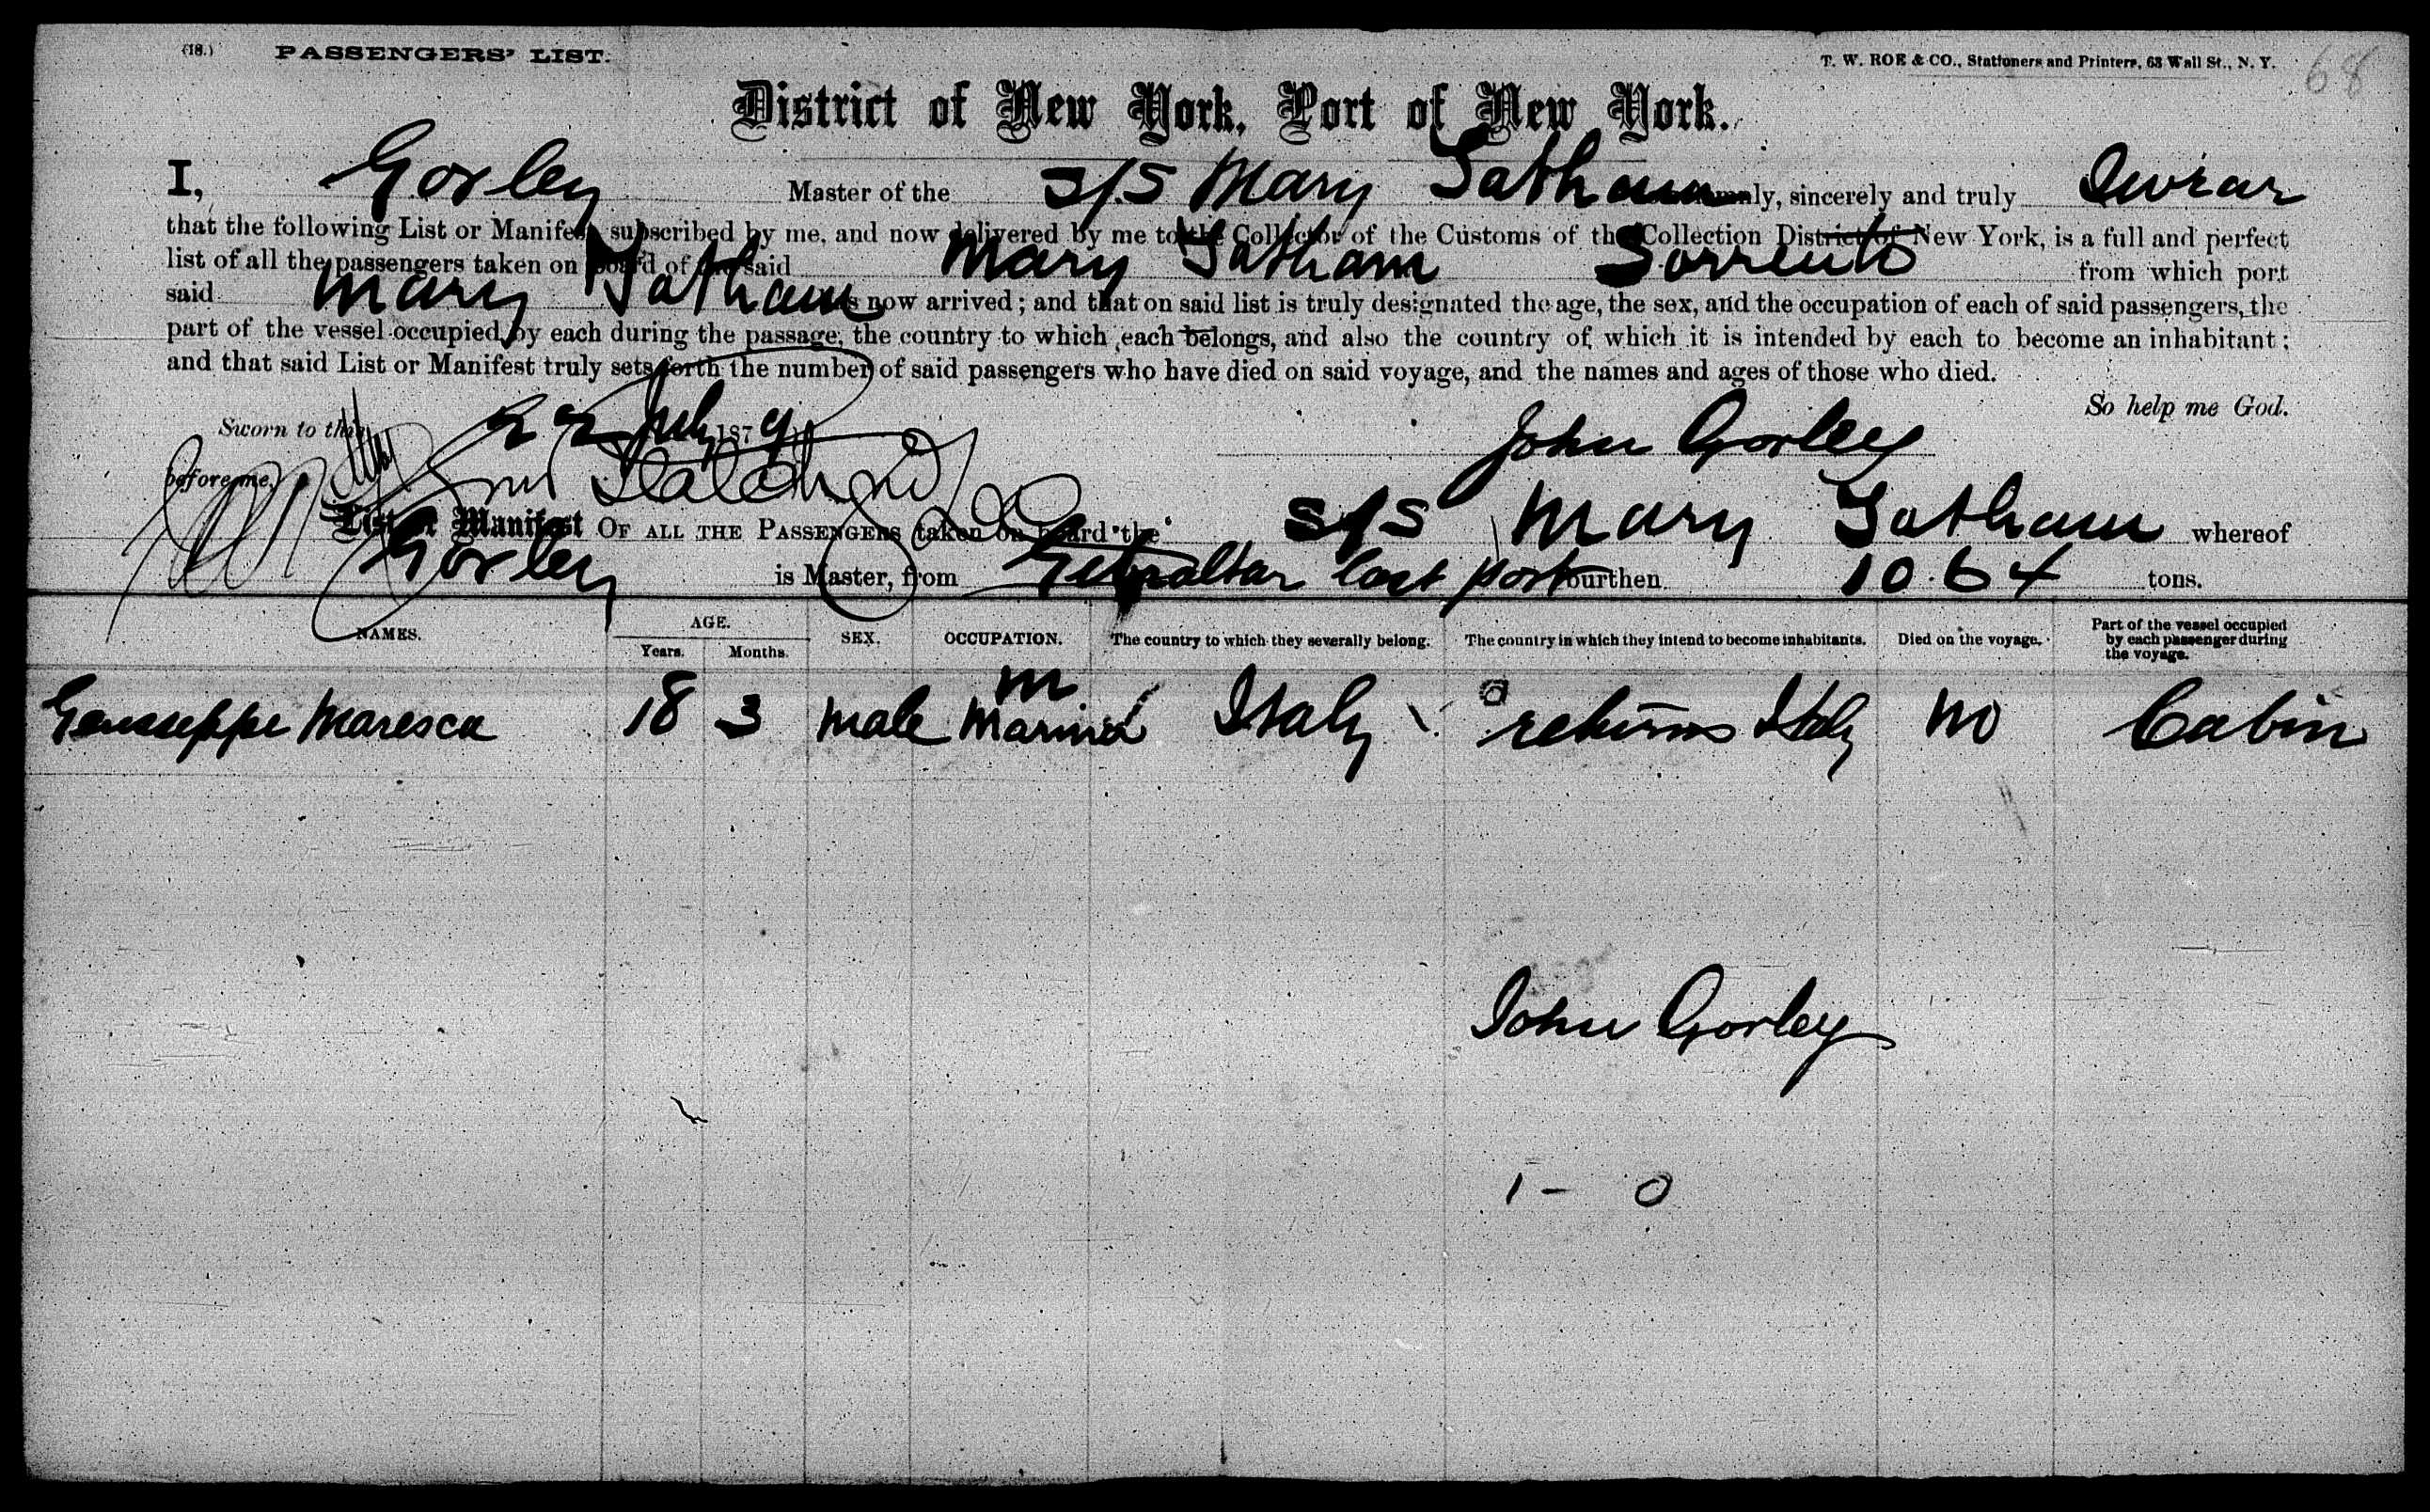 (18.) PASSENGERS' LIST. T. W. ROE & CO., Stationers and Printers, 63 Wall St., N. Y. 68
District of New York, Port of New York.
I, Gorley Master of the S/S Mary Tatham solemnly, sincerely and truly swear
that the following List or Manifest subscribed by me, and now delivered by me to the Collector of the Customs of the Collection District of New York, is a full and perfect
list of all the passengers taken on board of the said Mary Tatham Sorrento from which port
said Mary Tatham has now arrived; and that on said list is truly designated the age, the sex, and the occupation of each of said passengers, the
part of the vessel occupied by each during the passage, the country to which each belongs, and also the country of which it is intended by each to become an inhabitant;
and that said List or Manifest truly sets forth the number of said passengers who have died on said voyage, and the names and ages of those who died.
So help me God.
Sworn to this 22 July 1879 John Gorley
before me,
List or Manifest OF ALL THE PASSENGERS taken on board the S/S Mary Tatham whereof
Gorley is Master, from Gibraltar last port burthen 10.64 tons.
NAMES. AGE. Years. Months. SEX. OCCUPATION. The country to which they severally belong. The country in which they intend to become inhabitants. Died on the voyage. Part of the vessel occupied by each passenger during the voyage.
Geusseppe Maresca 18 3 male Mariner Italy returns Italy No Cabin
John Gorley
1 - 0